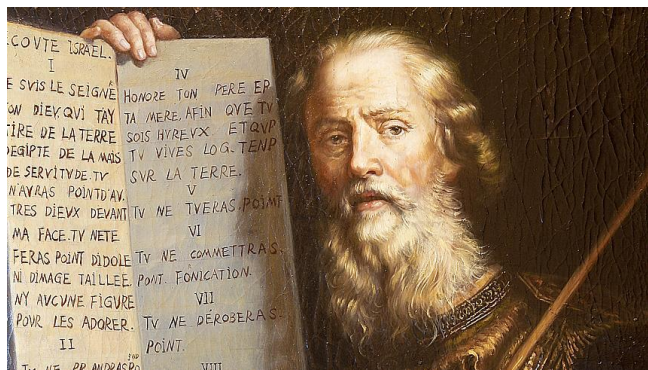 ECOVTE ISRAEL.
I
E SVIS LE SEIGNÊ
TON DIEV, QVI TAY
TIRE DE LA TERRE
DEGIPTE DE LA MAIS
DE SERVITVDE. TV
N'AVRAS POINT D'AV.
TRES DIEVX DEVANT
MA FACE. TV NETE
FERAS POINT DIDOLE
NI DIMAGE TAILLEE.
NY AVCVNE FIGURE
POVR LES ADORER.
II
TV NE PRANDRAS PO
IV
HONORE TON PERE ER
TA MERE, AFIN QVE TV
SOIS HVREVX. ET QVP
TV VIVES LOG. TENP
SVR LA TERRE.
V
TV NE TVERAS. POINT
VI
TV NE COMMETTRAS.
PONT. FONICATION.
VII
TV NE DÉROBERAS.
POINT.
VIII